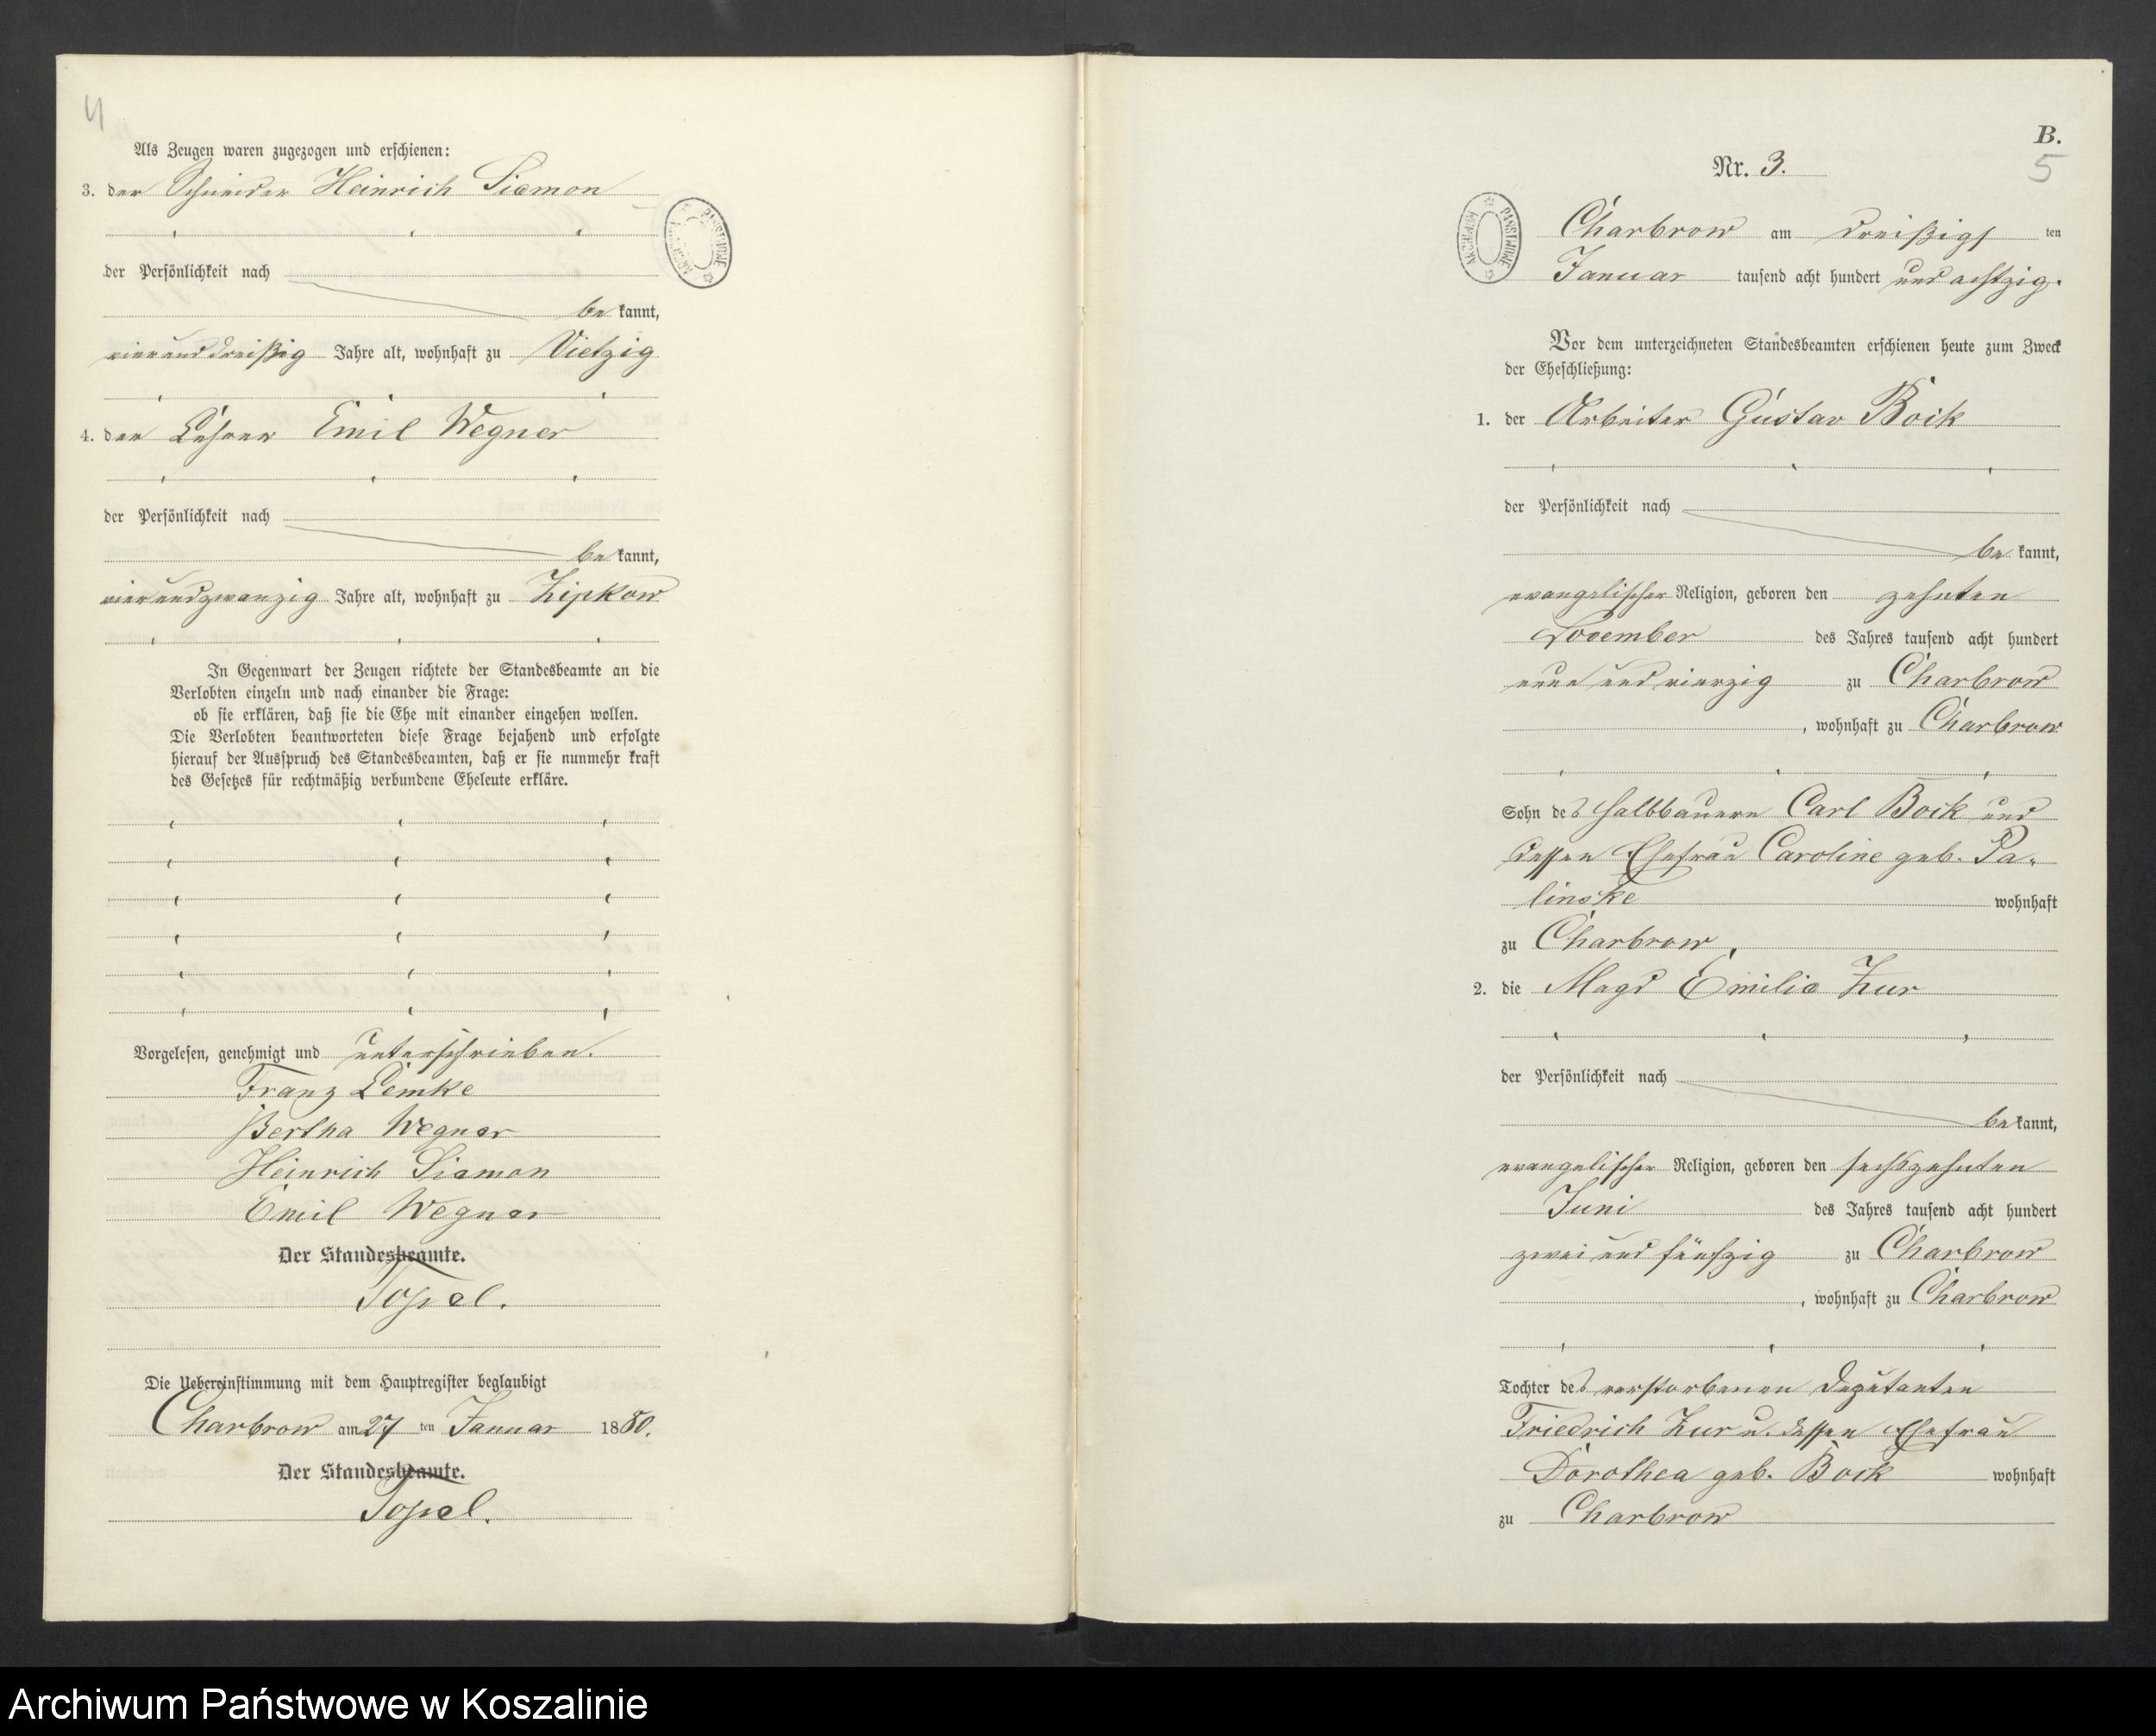 4
Als Zeugen waren zugezogen und erschienen:
3. der Schneider Heinrich Siemon
der Persönlichkeit nach
bekannt,
vierunddreißig Jahre alt, wohnhaft zu Vietzig
4. der Lehrer Emil Wegner
der Persönlichkeit nach
bekannt,
vierundzwanzig Jahre alt, wohnhaft zu Zipkow
In Gegenwart der Zeugen richtete der Standesbeamte an die
Verlobten einzeln und nach einander die Frage:
ob sie erklären, daß sie die Ehe mit einander eingehen wollen.
Die Verlobten beantworteten diese Frage bejahend und erfolgte
hierauf der Ausspruch des Standesbeamten, daß er sie nunmehr kraft
des Gesetzes für rechtmäßig verbundene Eheleute erkläre.
Vorgelesen, genehmigt und unterschrieben.
Franz Lemke
Bertha Wegner
Heinrich Siemon
Emil Wegner
Der Standesbeamte.
Topel.
Die Uebereinstimmung mit dem Hauptregister beglaubigt
Charbrow am 27 ten Januar 1880.
Der Standesbeamte.
Topel.
ARCHIWUM PAŃSTWOWE
B.
5
Nr. 3.
ARCHIWUM PAŃSTWOWE
Charbrow am dreißigst ten
Januar tausend acht hundert und achtzig.
Vor dem unterzeichneten Standesbeamten erschienen heute zum Zweck
der Eheschließung:
1. der Arbeiter Gustav Bock
der Persönlichkeit nach
bekannt,
evangelischer Religion, geboren den zehnten
November des Jahres tausend acht hundert
neun und vierzig zu Charbrow
, wohnhaft zu Charbrow
Sohn des Halbbauern Carl Bock und
dessen Ehefrau Caroline geb. Pa-
linske wohnhaft
zu Charbrow,
2. die Magd Emilie Zur
der Persönlichkeit nach
bekannt,
evangelischer Religion, geboren den sechszehnten
Juni des Jahres tausend acht hundert
zwei und fünfzig zu Charbrow
, wohnhaft zu Charbrow
Tochter des verstorbenen Deputanten
Friedrich Zur u. dessen Ehefrau
Dorothea geb. Bock wohnhaft
zu Charbrow
Archiwum Państwowe w Koszalinie